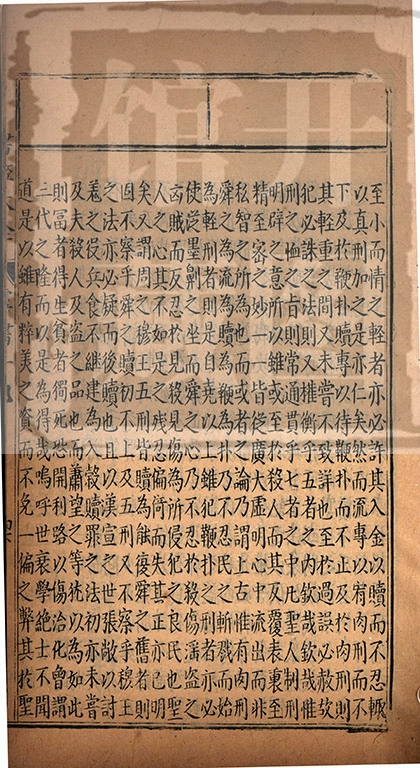 至小而情之輕者亦必許其入金以贖而不忍輒
以真刑加之是亦仁矣然而流專以宥肉刑而不
下及於鞭扑贖專以待鞭扑而不上及於肉刑則
其輕重之間又未嘗不致詳也至於過誤必赦故
犯必誅之法則又權衡乎五者之內欽哉欽哉惟
刑之恤之旨則常通貫乎七者之中此聖人制刑
明辟之意所以雖或至於殺人而其反覆表裏至
精至密之妙一一皆從廣大虛明心中流出而非
私智之所為也而或者之論乃謂上古惟有肉刑
舜之為流為贖為鞭為扑乃不忍民之斬戮而始
為輕刑者則是自堯以上雖犯鞭扑之刑者亦必
使從墨劓之坐而舜之心乃不忍於殺傷淫盜之
凶賊而反忍於見殺見傷為所侵犯之良民也聖
人之心其不如是之殘賊偏倚而失其正亦已明
矣又謂周之穆王五刑皆贖為能復舜之舊者則
固不察乎舜之贖初不上及五刑又不察乎穆王
之法亦必疑而後贖也且以漢宣之世張敞以討
羌之役兵食不繼建為入穀贖罪之法初亦未嘗
及夫殺人及盜之品也而蕭望之等猶以為如此
則富者得生貧者獨死恐開利路以傷治化曾謂
三代之隆而以是為得哉嗚呼世衰學絕士不聞
道是以雖有粹美之資而不免一偏之弊其於聖